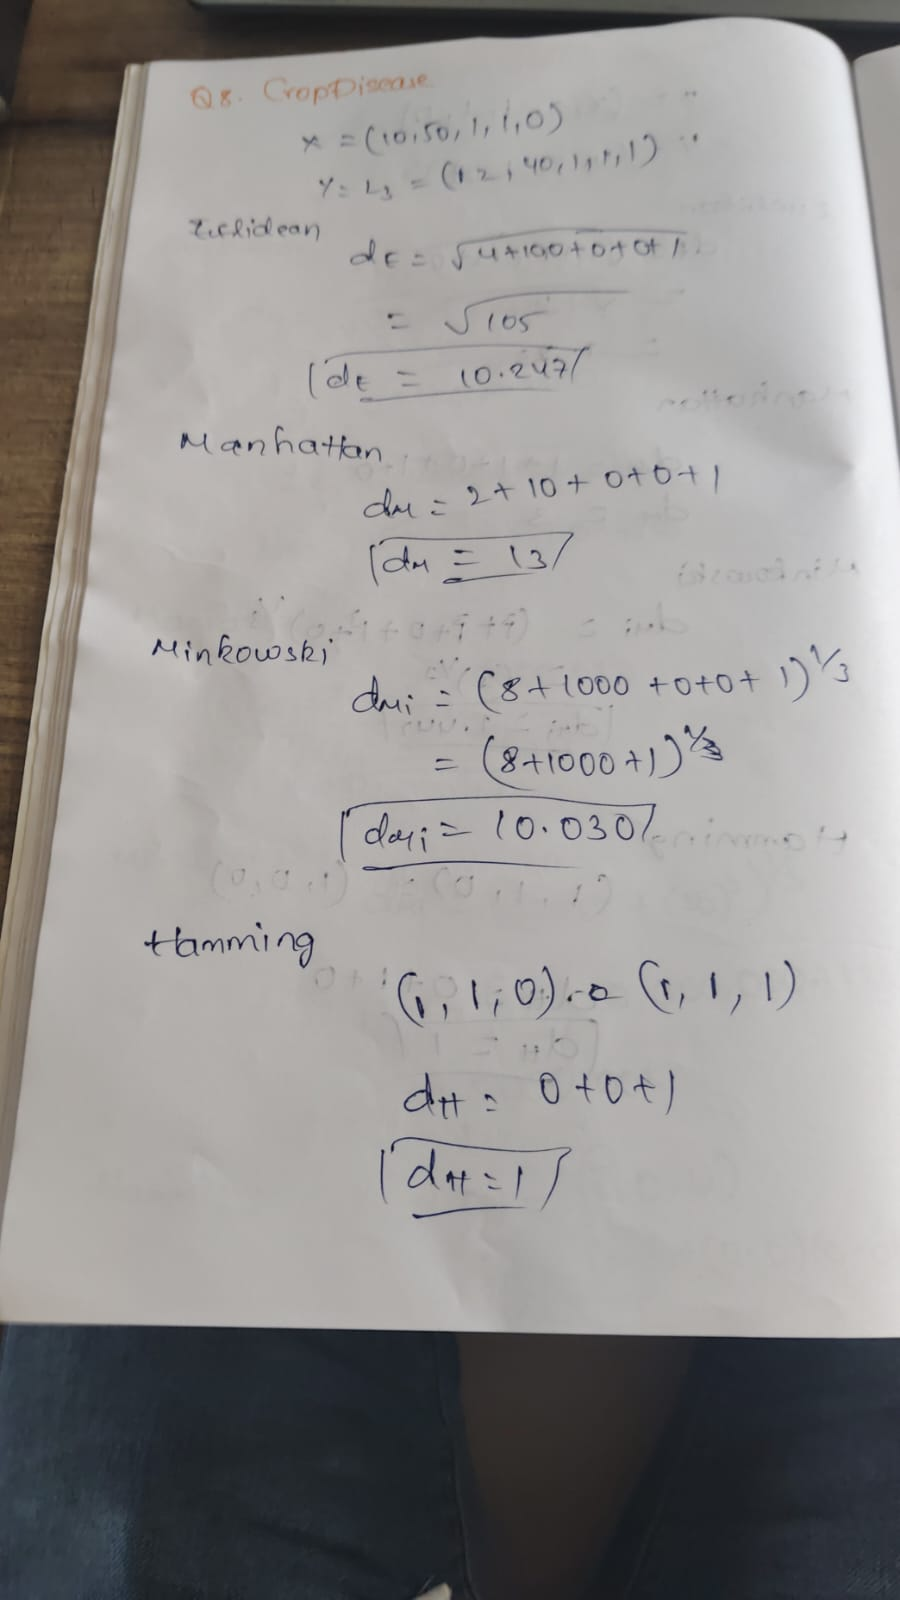 Q8. CropDisease
x = (10,50,1,1,0)
Y = L3 = (12,40,1,1,1)
Euclidean
dE = √4+100+0+0+1
= √105
dE = 10.247
Manhattan
dM = 2+10+0+0+1
dM = 13
Minkowski
dMi = (8+1000+0+0+1)^1/3
= (8+1000+1)^1/3
dMi = 10.030
Hamming
(1,1,0) (1,1,1)
dH = 0+0+1
dH = 1